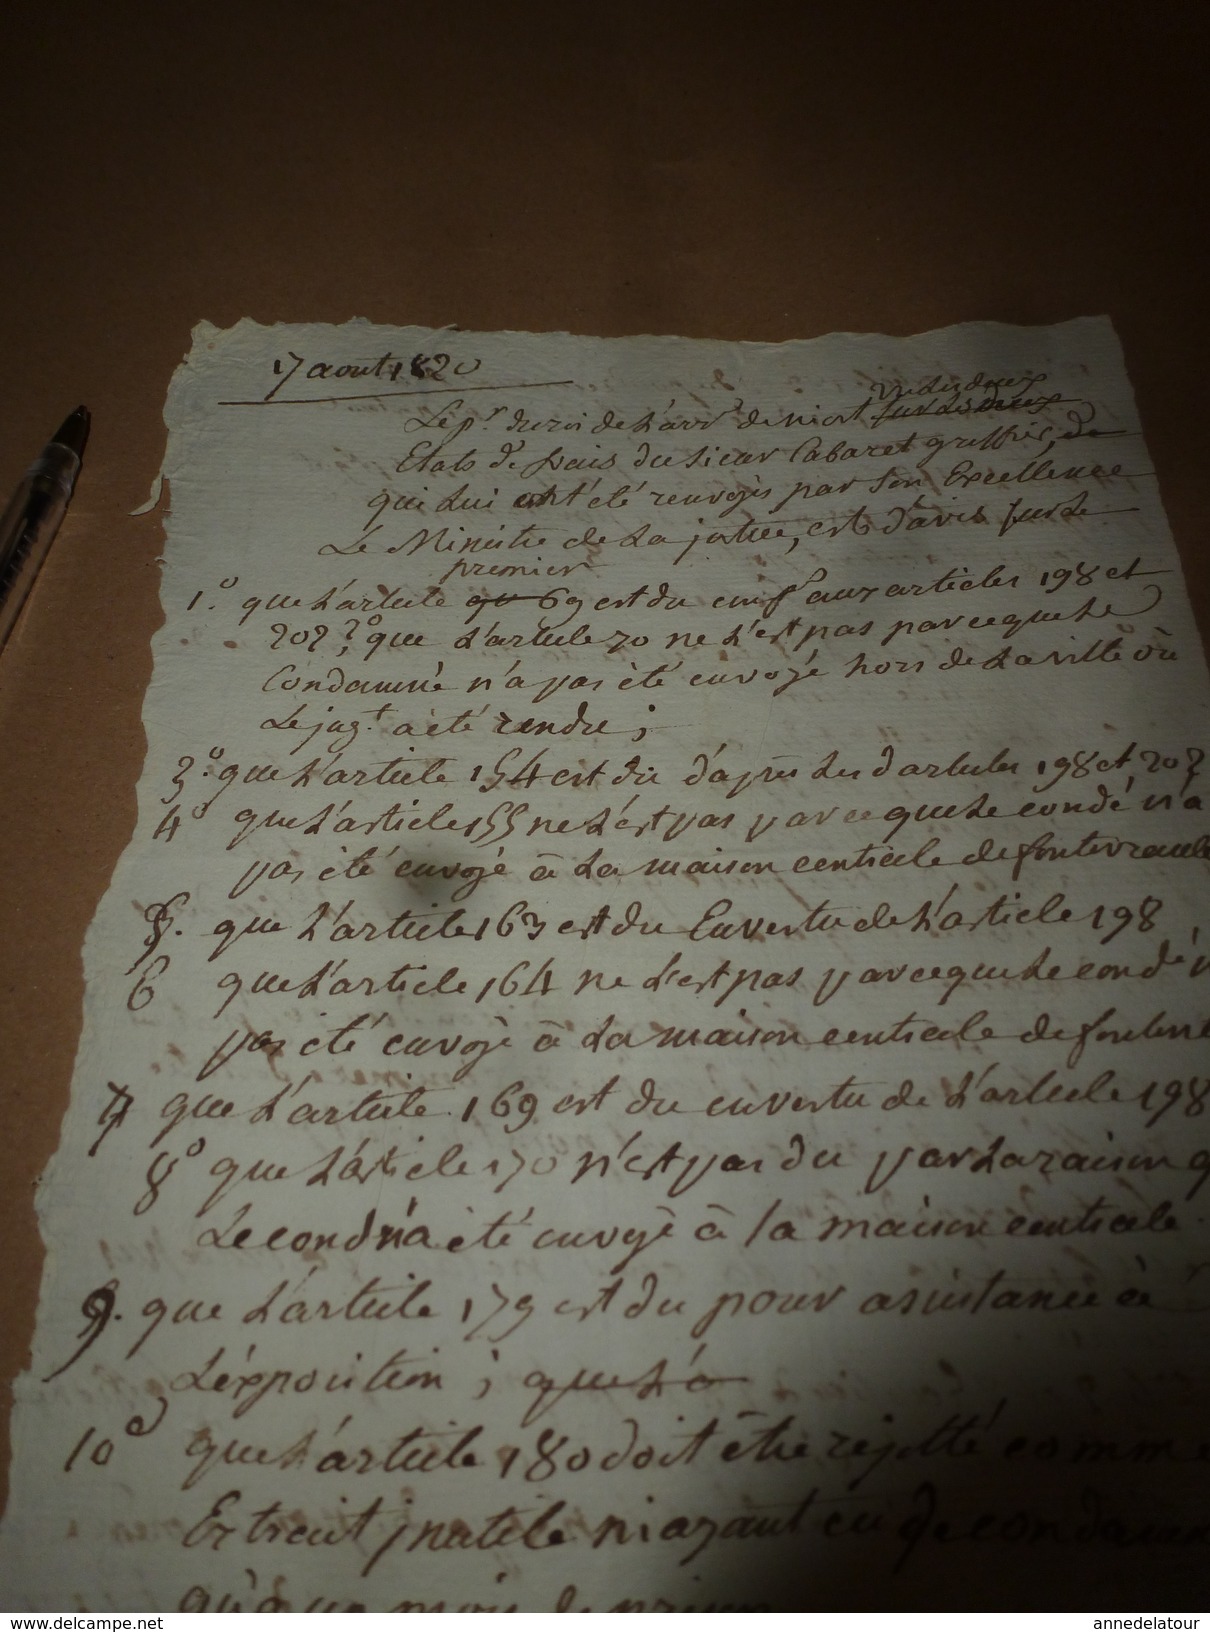 17 aout 1820
vu les deux
Le pr. du roi de l'arrt de niort sur les deux
Etats de frais du sieur Cabaret greffier, de
qui lui ont été renvoyés par Son Excellence
Le Ministre de La justice, est d'avis sur le
premier
1.° que L'article qu 69 est du conft aux articles 198 et
202, 2° que L'article 70 ne L'est pas parceque Le
Condamné n'a pas été envoyé hors de La ville où
Le jugt a été rendu ;
3.° que L'article 154 est du d'après Les d articles 198 et 202
4° que L'article 155 ne L'est pas parceque Le condé n'a
pas été envoyé à La maison centrale de fontevraul
5. que L'article 163 est du En vertu de L'article 198
6 que L'article 164 ne L'est pas parceque Le condé n
pas été envoyé à La maison centrale de fonte
7 que L'article 169 est du en vertu de L'article 198
8° que L'article 170 n'est pas du par La raison q
Le cond n'a été envoyé à la maison centrale
9. que L'article 179 est du pour assistance à
L'éxposition ; que L'a
10° que L'article 180 doit être rejetté comme
Extrait jnutile n'ayant eu de condamn
qu'à un mois de prison
delcampe.net
annedelatour